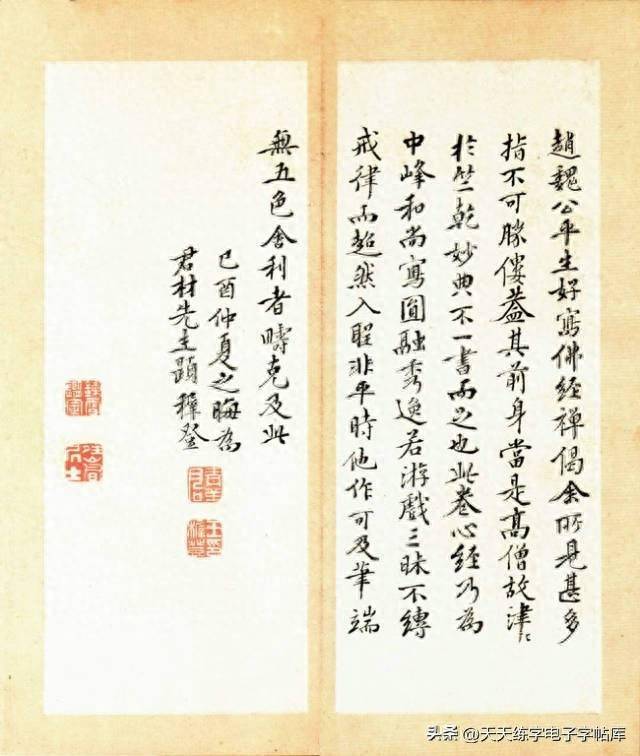 趙魏公平生好寫佛經禅偈余所見甚多
指不可勝僂葢其前身當是高僧故津〻
於竺乾妙典不一書而足也此卷心經乃為
中峰和尚寫圓融秀逸若游戲三昧不縛
戒律而超然入聖非平時他作可及筆端
無五色舍利者疇克及此
己酉仲夏之晦為
君材先生題穉登
头条 @天天练字电子字帖库